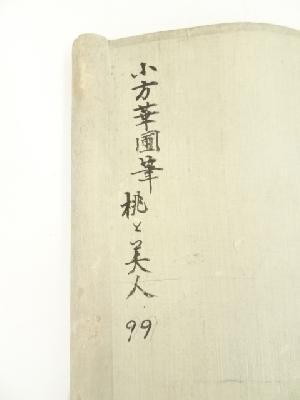 小方華圃筆桃と美人 99